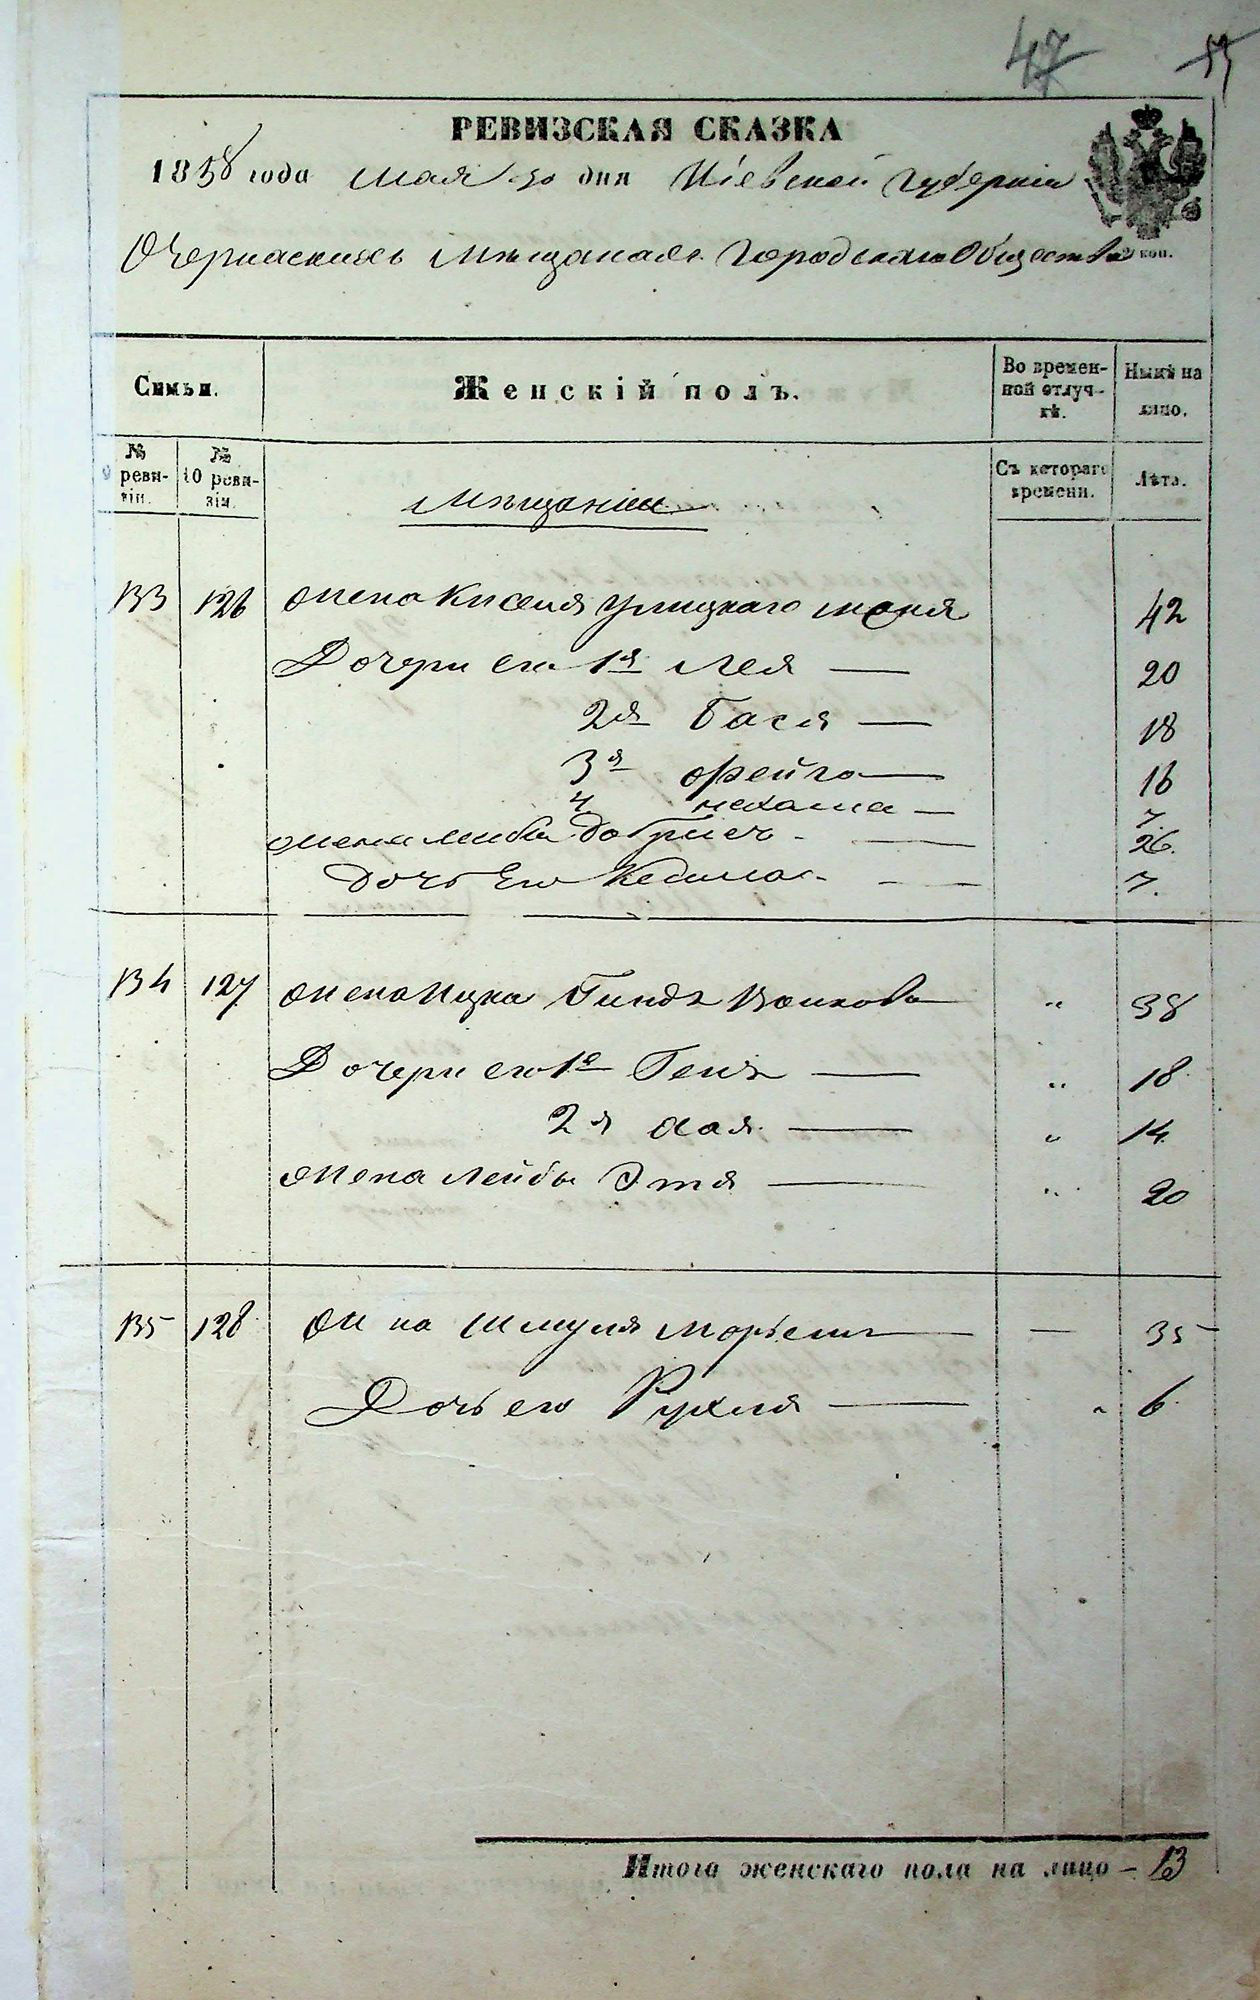 47 55
РЕВИЗСКАЯ СКАЗКА
1858 года мая 30 дня Кіевской губерніи
О Черкаскихъ мѣщанахъ городскаго общества
коп.
Семьи. Женскій полъ. Во временной отлучкѣ. Нынѣ на лицо.
№ 9 ревизіи. № 10 ревизіи. Съ котораго времени. Лѣта.
Мѣщанки
133 126 Жена Киселя Улицкаго 42
Дочери его 1я Лея — 20
2я Бася — 18
3я Фейга — 16
4 Нехама — 7
Жена Лейбы — 26.
Дочь Его — 7.
134 127 Жена Ицка Гинда " 38
Дочери его 1я Геня — " 18
2я Хая — " 14
Жена Лейбы Этя — " 20
135 128 Жна Шмуля — — 35
Дочь его Рухля — " 6
Итого женскаго пола на лицо — 13